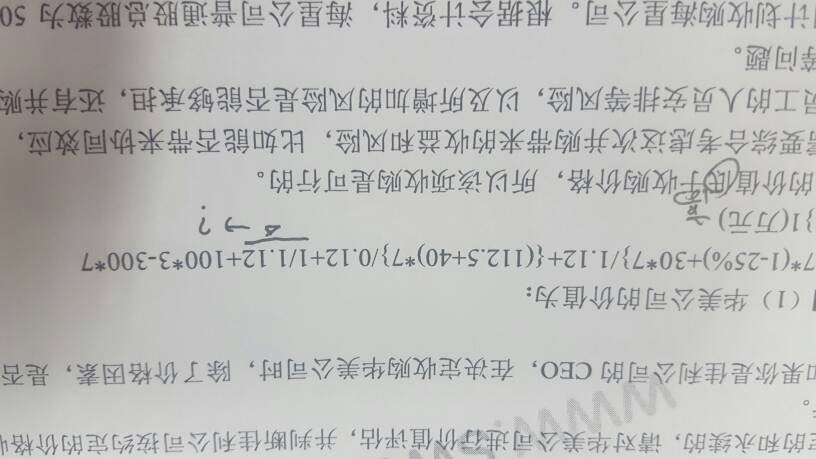 定的和永续的，请对华美公司进行价值评估，并判断佳利公司按约定的价格收
。
如果你是佳利公司的 CEO，在决定收购华美公司时，除了价格因素，是否
（1）华美公司的价值为：
7*(1-25%)+30*7}/1.12+{(112.5+40)*7}/0.12+1/1.12+100*3-300*7
}1(万元)
△ → ?
的价值低于收购价格，所以该项收购是可行的。
需要综合考虑这次并购带来的收益和风险，比如能否带来协同效应，
员工的人员安排等风险，以及所增加的风险是否能够承担，还有并购
等问题。
计划收购海星公司。根据会计资料，海星公司普通股总股数为 50
www.